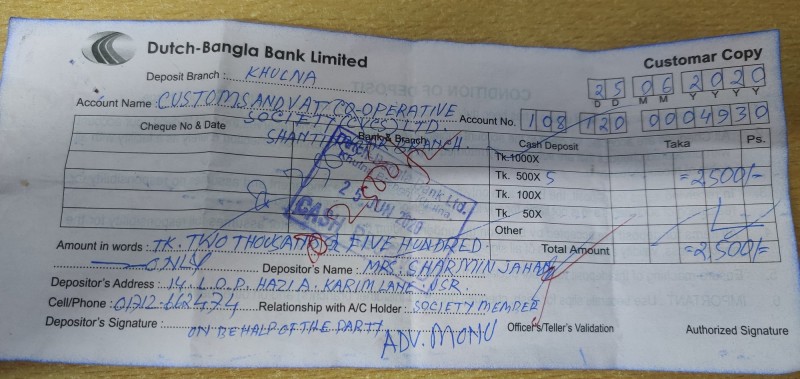 Dutch-Bangla Bank Limited
Customar Copy
Deposit Branch : KHULNA
25 06 2020
D D M M Y Y Y Y
Account Name : CUSTOMS AND VAT CO-OPERATIVE
SOCIETY LTD.
Account No. 108 120 0004930
BRANCH.
Cheque No & Date Bank & Branch Cash Deposit Taka Ps.
Tk. 1000X
Tk. 500X 5 =2500/-
Tk. 100X
Tk. 50X
Other
25 JUN 2020
CASH
Bank Ltd.
Total Amount =2500/=
Amount in words : TK. TWO THOUSAND & FIVE HUNDRED
ONLY
Depositor's Name : MRS. SHARMIN JAHAN
Depositor's Address : 14. L.O.P. HAZI A. KARIM LANE.
Cell/Phone : 01712-662474 Relationship with A/C Holder : SOCIETY MEMBER
Depositor's Signature : ON BEHALF OF THE PARTY
ADV. MONU
Officer's/Teller's Validation
Authorized Signature